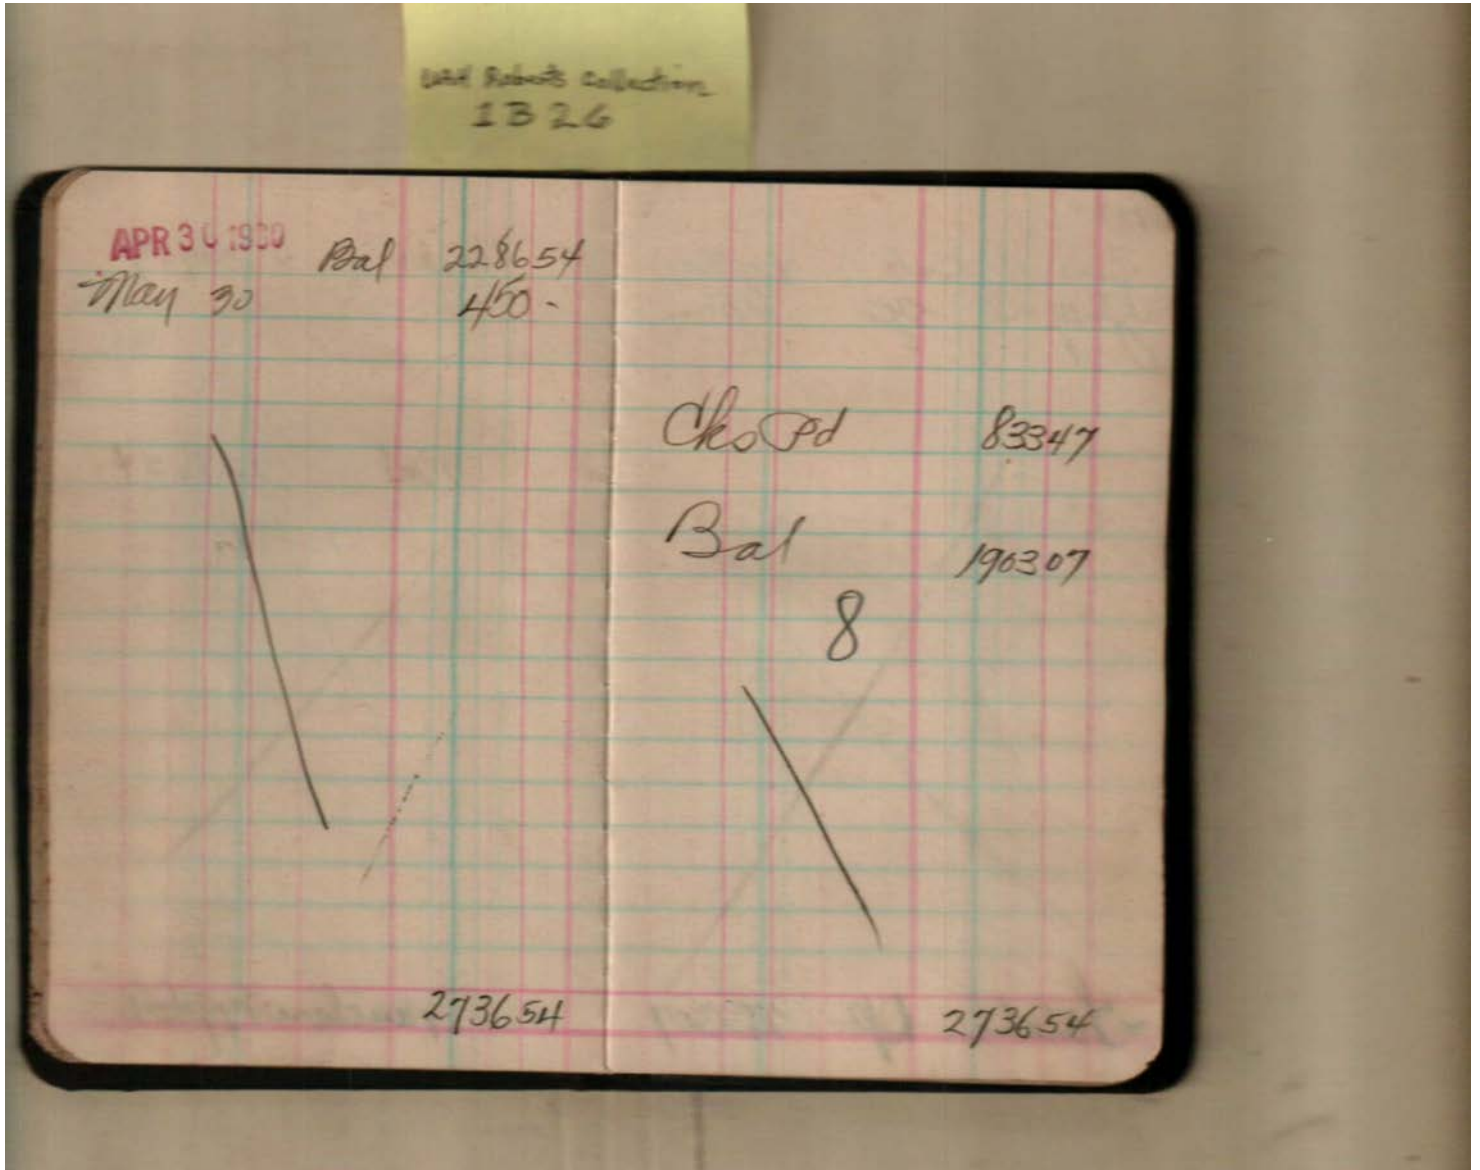 UAH Roberts Collection
1B26
APR 30 1930 Bal 228654
May 30 450 -
Cks Pd 83347
Bal 190307
8
273654
273654